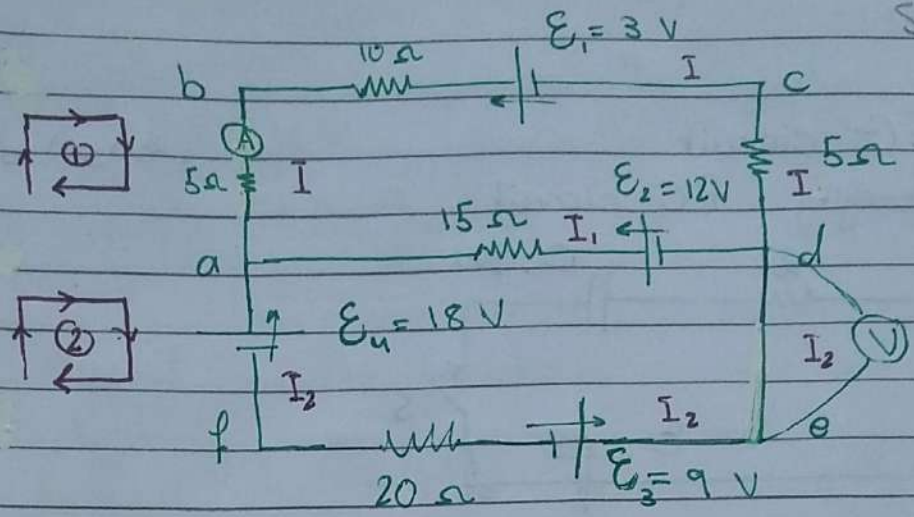 ε₁ = 3 V
10 Ω
I
b
c
A
①
5 Ω
I
5 Ω
I
ε₂ = 12V
15 Ω
I₁
a
d
②
ε₄ = 18 V
I₂
I₂
V
I₂
f
e
20 Ω
ε₃ = 9 V